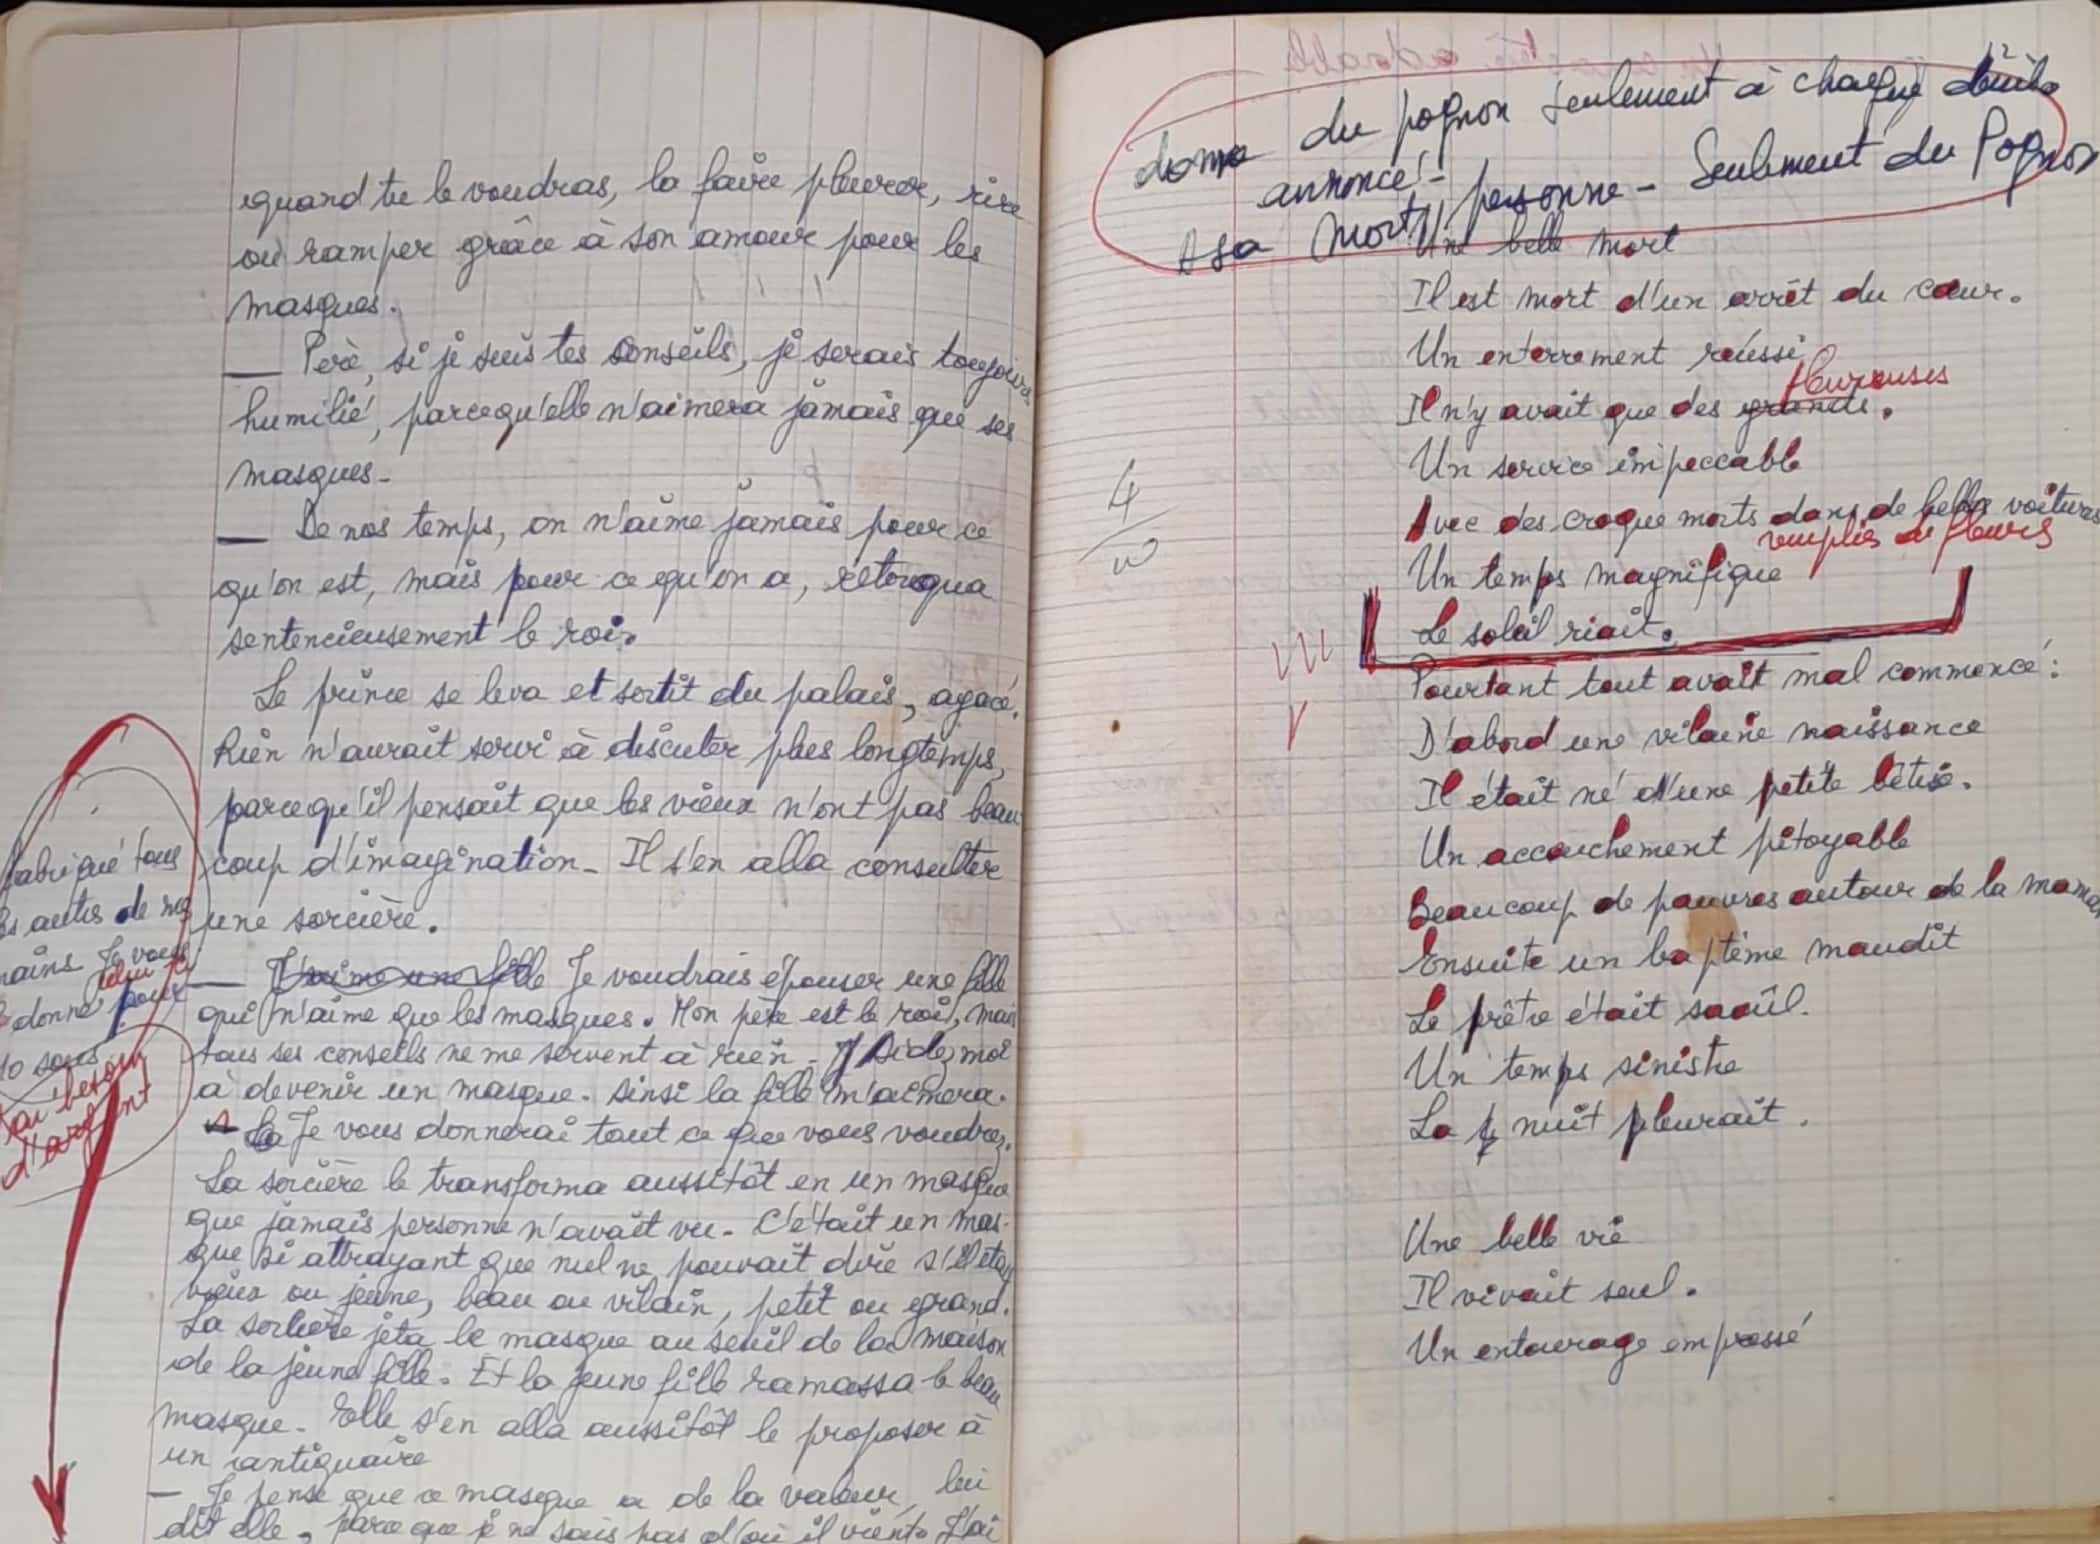 quand tu le voudras, la faire pleurer, rire
ou ramper grâce à son amour pour les
masques.
— Père, si je suis tes conseils, je serais toujours
humilié, parcequ'elle n'aimera jamais que ses
masques-
— De nos temps, on n'aime jamais pour ce
qu'on est, mais pour ce qu'on a, rétorqua
sentencieusement le roi.
Le prince se leva et sortit du palais, agacé.
Rien n'aurait servi à discuter plus longtemps,
parcequ'il pensait que les vieux n'ont pas beau
coup d'imagination- Il s'en alla consulter
une sorcière.
— J'aime une fille Je voudrais épouser une fille
qui n'aime que les masques. Mon père est le roi, mais
tous ses conseils ne me servent à rien- Aidez moi
à devenir un masque. Ainsi la fille m'aimera.
Je vous donnerai tout ce que vous voudrez.
La sorcière le transforma aussitôt en un masque
que jamais personne n'avait vu- C'était un mas-
que si attrayant que nul ne pouvait dire s'il était
vieux ou jeune, beau ou vilain, petit ou grand.
La sorcière jeta le masque au seuil de la maison
de la jeune fille. Et la jeune fille ramassa le beau
masque. Elle s'en alla aussitôt le proposer à
un antiquaire
— Je pense que ce masque a de la valeur, lui
dit elle, parce que je ne sais pas d'où il vient. J'ai
fabriqué tous
les autres de mes
mains Je vous
donne celui ci pour
10 sous
J'ai besoin
d'argent
du pognon seulement à chaque
annoncé-
A sa mort, personne- Seulement du Pognon
Une belle mort
Il est mort d'un arrêt du cœur.
Un enterrement réussi
pleureuses
Il n'y avait que des grands.
Un service impeccable
Avec des croque morts dans de belles voitures
remplies de fleurs
Un temps magnifique
Le soleil riait.
Pourtant tout avait mal commencé:
D'abord une vilaine naissance
Il était né d'une petite bêtise.
Un accouchement pitoyable
Beaucoup de pauvres autour de la maman
Ensuite un baptême maudit
Le prêtre était saoûl.
Un temps sinistre
La nuit pleurait.
Une belle vie
Il vivait seul.
Un entourage empressé